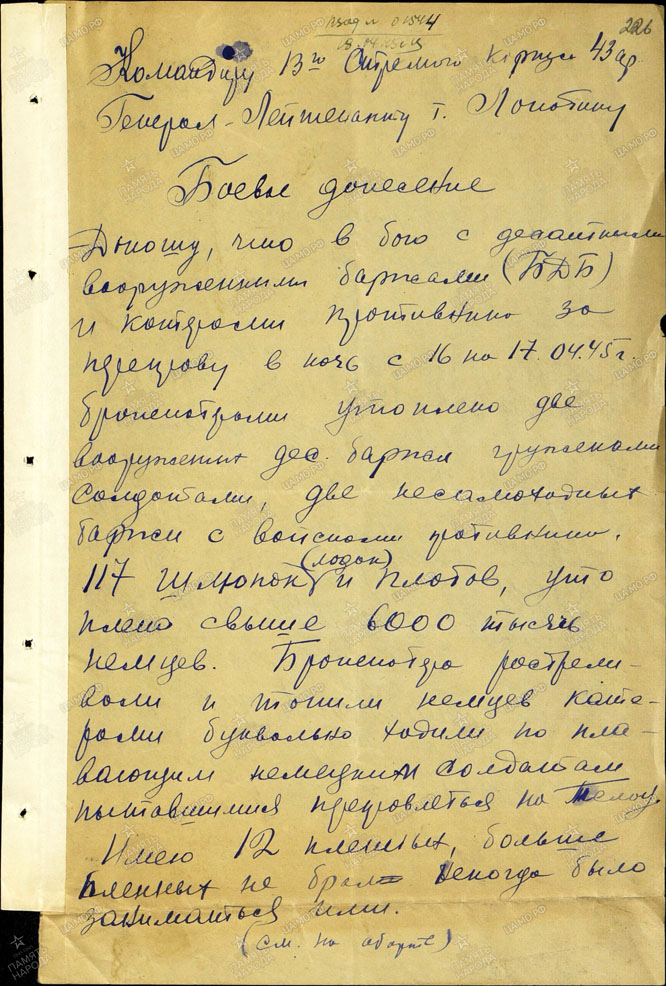 вход № 01544
226
18.04.45
Командиру 13го Стрелкого Корпуса 43 ар.
Генерал-Лейтенанту т. Лопотину
Боевое донесение
Доношу, что в бою с десантными
вооруженными баржами (БДБ)
и катерами противника за
переправу в ночь с 16 на 17.04.45г.
бронекатерами утоплено две
вооруженных дес. баржи груженами
солдатами, две несамоходных
баржи с войсками противника,
117 шлюпок (лодок) и плотов, уто
плено свыше 6000 тысяч
немцев. Бронекатера растрели-
вали и топили немцев кате-
рами буквально ходили по пла-
вающим немецким солдатам
пытавшимися переправляться на
Имею 12 пленных, больше
пленных не брал некогда было
заниматься ими.
(см. на обороте)